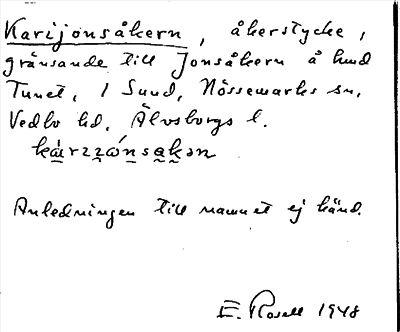 Karijonsåkern, åkerstycke,
gränsande till Jonsåkern å hmd
Tunet, 1 Sund, Nössemarks sn,
Vedbo hd, Älvsborgs l.
Anledningen till namnet ej känd.
E. Rosell 1948